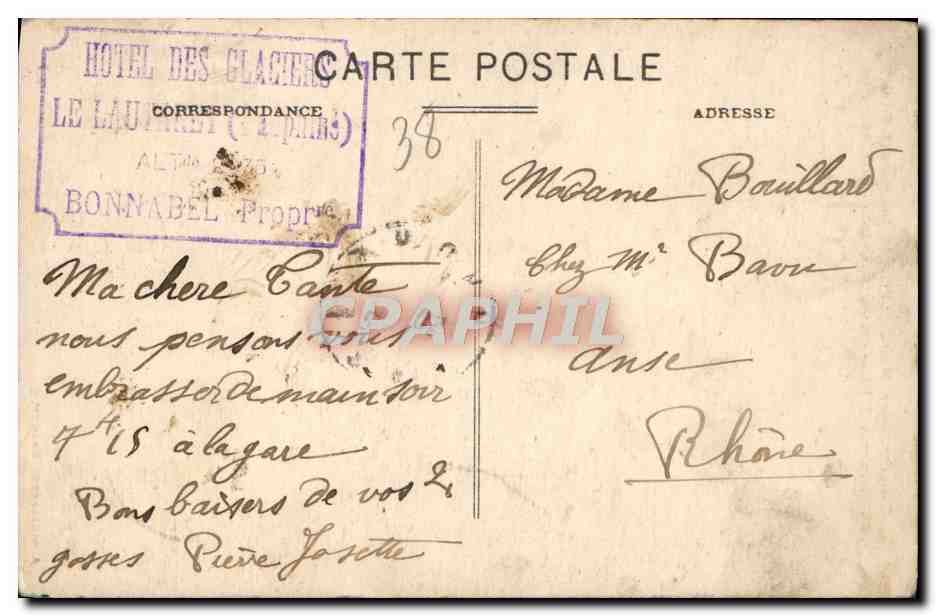 HOTEL DES GLACIERS
LE LAUTARET
BONNABEL Propr
CARTE POSTALE
CORRESPONDANCE
ADRESSE
38
Ma chere Tante
nous pensons vous
embrasser demain soir
7 H 15 à la gare
Bons baisers de vos 2
gosses Pierre Josette
Madame Bouillard
Chez Mr Bavu
anse
Rhône
CPAPHIL